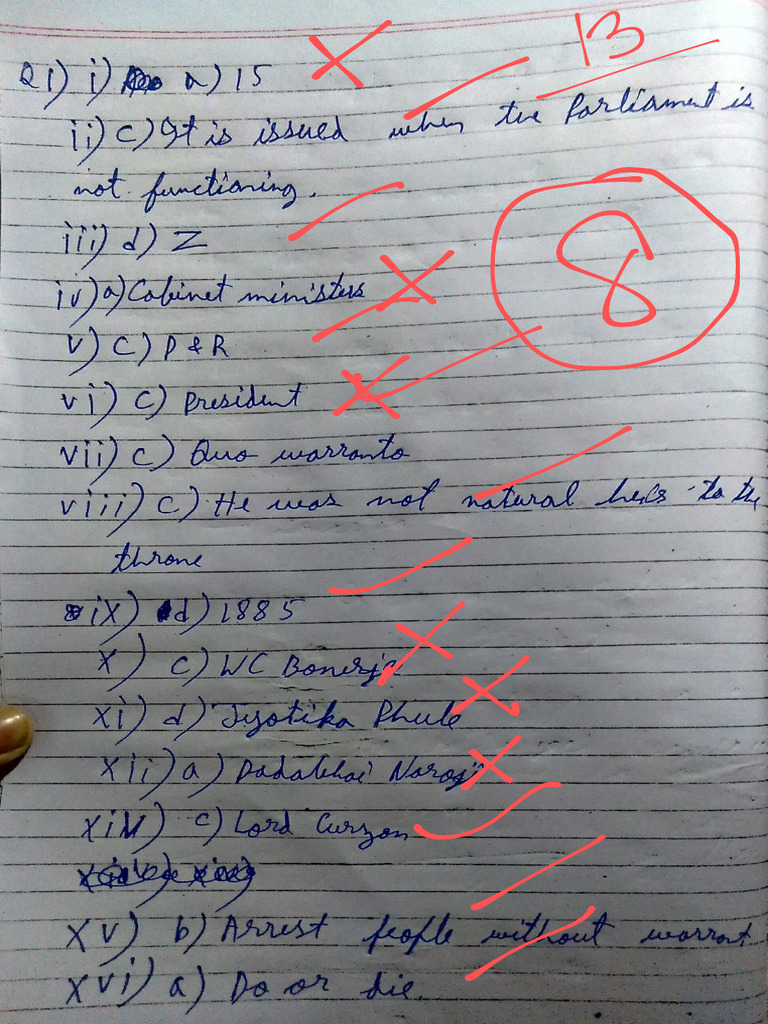 13
Q1) i) a) 15
ii) c) It is issued when the Parliament is
not functioning.
8
iii) d) Z
iv) a) Cabinet ministers
v) c) P & R
vi) c) President
vii) c) Quo warranto
viii) c) He was not natural heir to the
throne
ix) d) 1885
x) c) WC Bonerje
xi) d) Jyotika Phule
xii) a) Dadabhai Naroji
xiv) c) Lord Curzon
xv) b) Arrest people without warrant
xvi) a) Do or die.